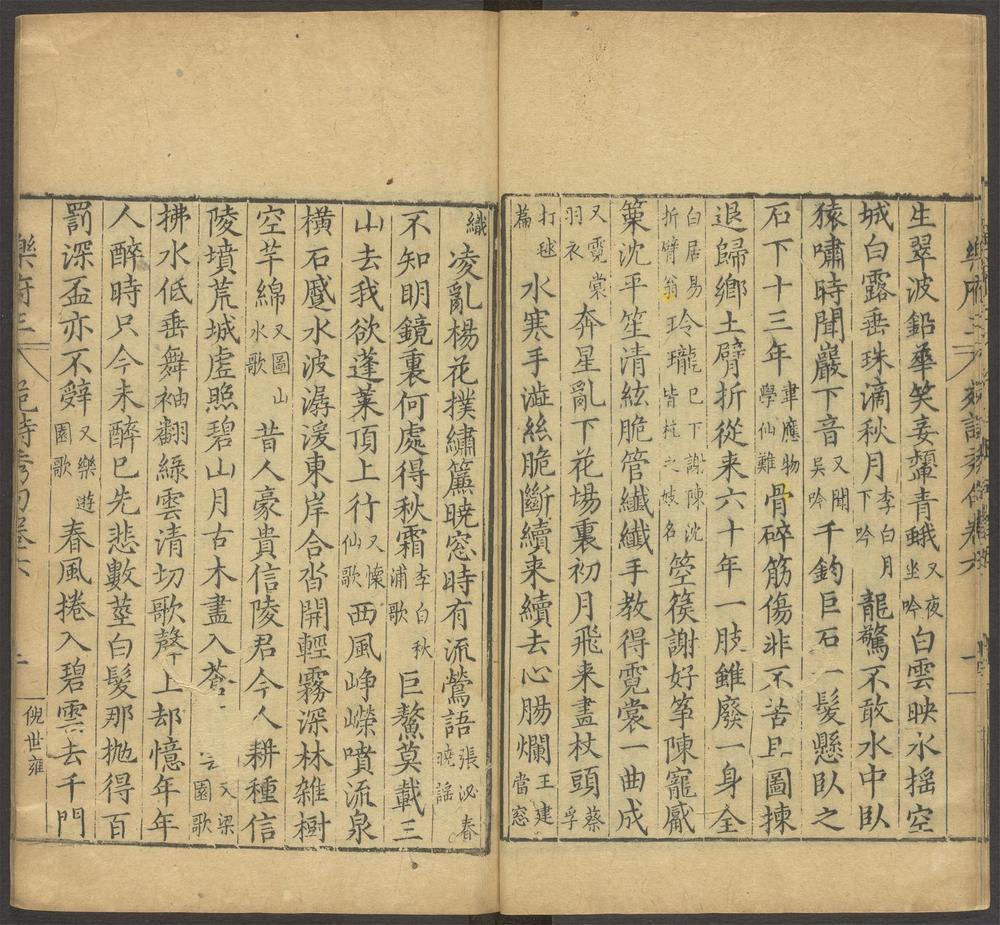 生翠波鉛華笑妾顰青蛾又夜坐吟白雲映水摇空
城白露垂珠滴秋月李白月下吟龍驚不敢水中臥
猿嘯時聞巖下音又聞吳吟千鈞巨石一髮懸臥之
石下十三年韋應物學仙難骨碎筋傷非不苦且圖揀
退歸鄉土臂折從来六十年一肢雖廢一身全
白居易折臂翁玲瓏已下謝陳沈皆枉之妓名箜篌謝好筝陳寵觱
篥沈平笙清絃脆管纖纖手教得霓裳一曲成
又霓裳羽衣奔星亂下花場裏初月飛来畫杖頭蔡孚
打毬篇水寒手澁絲脆斷續来續去心腸爛王建當窓
織凌亂楊花撲繡簾曉窓時有流鶯語張泌春曉謡
不知明鏡裏何處得秋霜李白秋浦歌巨鰲莫載三
山去我欲蓬莱頂上行又懷仙歌西風峥嶸噴流泉
横石蹙水波潺湲東岸合沓開輕霧深林雜樹
空芊綿又圖山水歌昔人豪貴信陵君今人耕種信
陵墳荒城虛照碧山月古木盡入蒼又梁園歌
拂水低垂舞袖翻緑雲清切歌聲上却憶年年
人醉時只今未醉已先悲數莖白髮那抛得百
罰深盃亦不辭又樂遊園歌春風捲入碧雲去千門
樂府三
倪世雍